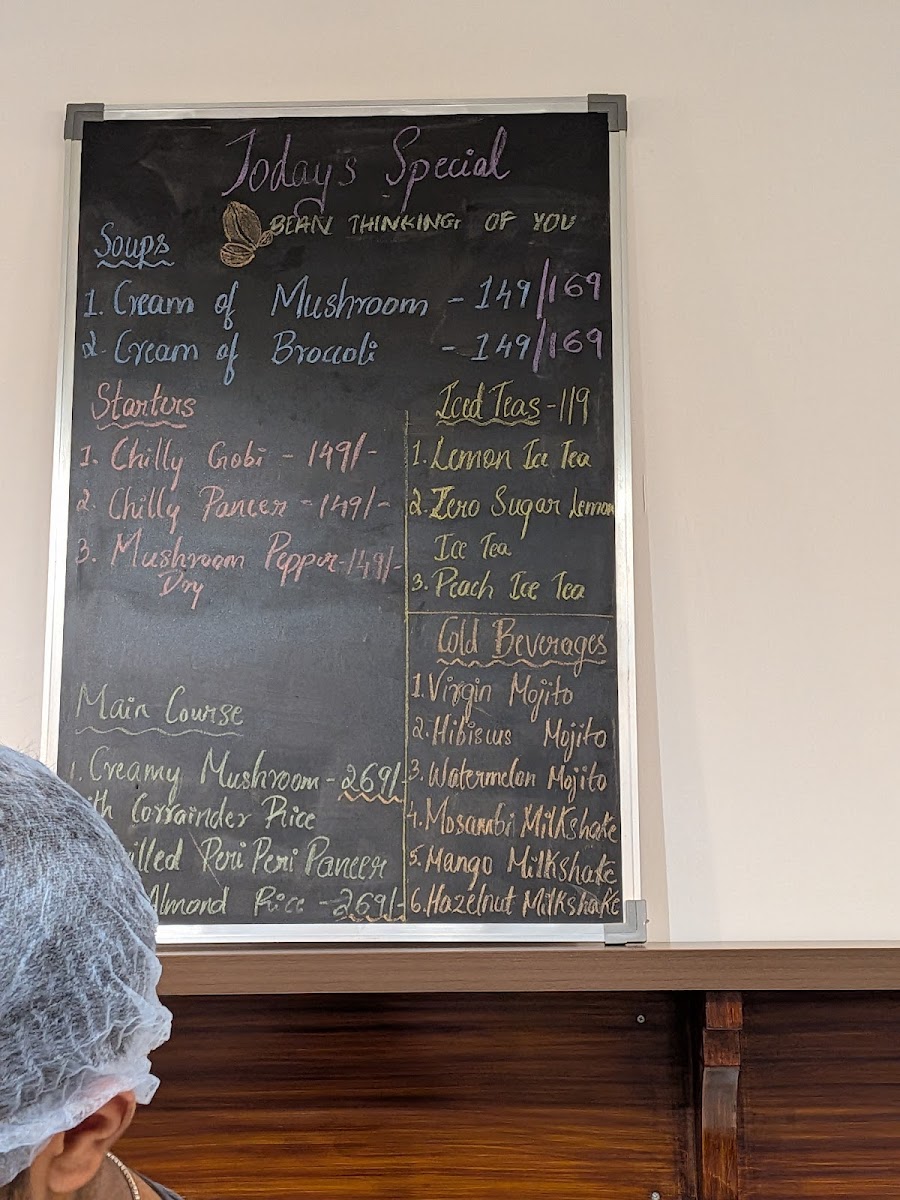 Today's Special
BEAN THINKING OF YOU
Soups
1. Cream of Mushroom - 149/169
2. Cream of Broccoli - 149/169
Starters
1. Chilly Gobi - 149/-
2. Chilly Paneer - 149/-
3. Mushroom Pepper - 149/-
Dry
Main Course
1. Creamy Mushroom - 269/-
th Corrainder Rice
illed Peri Peri Paneer
Almond Rice - 269/-
Iced Teas - 119
1. Lemon Ice Tea
2. Zero Sugar Lemon
Ice Tea
3. Peach Ice Tea
Cold Beverages
1. Virgin Mojito
2. Hibiscus Mojito
3. Watermelon Mojito
4. Mosambi Milkshake
5. Mango Milkshake
6. Hazelnut Milkshake